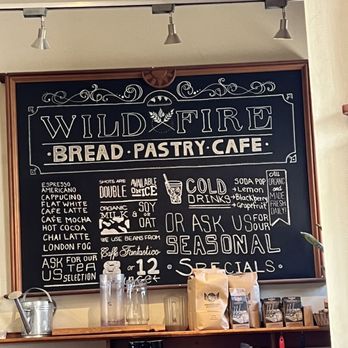 WILD FIRE
BREAD · PASTRY · CAFE
ESPRESSO
AMERICANO
CAPPUCINO
FLAT WHITE
CAFE LATTE
CAFE MOCHA
HOT COCOA
CHAI LATTE
LONDON FOG
ASK FOR OUR
TEA
SELECTION
SHOTS ARE
DOUBLE
AVAILABLE
ON ICE
ORGANIC
MILK &
SOY
OR
OAT
WE USE BEANS FROM
Caffè Fantastico
or 12
COLD
DRINKS
SODA POP
Lemon
Blackberry
Grapefruit
All
ORGANIC
and
MADE
FRESH
DAILY!
OR ASK US FOR OUR
SEASONAL
Specials